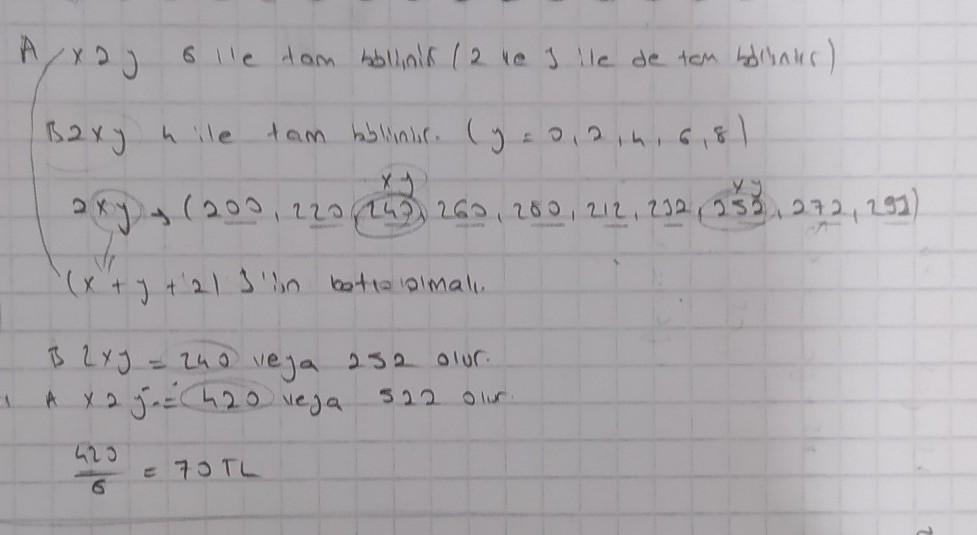 A x2y 6 ile tam bölünür (2 ve 3 ile de tam bölünür)
B 2xy 4 ile tam bölünür. (y = 0, 2, 4, 6, 8)
xy xy
2xy → (200, 220, 240, 260, 280, 212, 232, 252, 272, 292)
(x + y + 2) 3'ün katı olmalı.
B 2xy = 240 veya 252 olur.
A x2y = 420 veya 522 olur.
420/6 = 70 TL